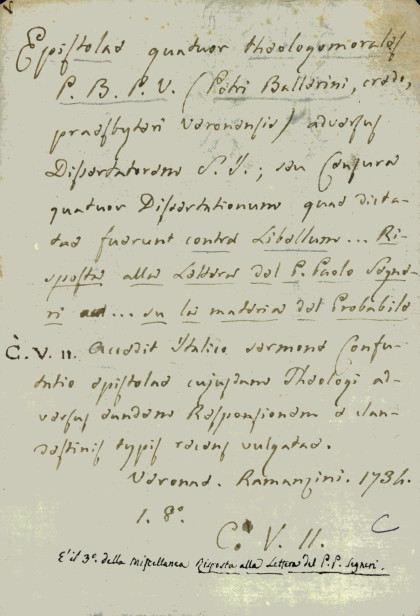 Epistolae quatuor theologomorales
P. B. P. V. (Petri Ballerini, credo,
praesbyteri Veronensis) adversus
Dissertatorem S. J.; seu Censura
quatuor Dissertationum quae dicta-
tae fuerunt contra Libellum... Ri-
sposta alla Lettera del P. Paolo Segne-
ri ... su la materia del Probabile
C. V. 11. Accedit Italico sermone Confu-
tatio epistolae cujusdam Theologi ad-
versus eandem Responsionem e clan-
destinis typis recens vulgatae.
Veronae. Ramanzini. 1734.
1. 8º
C. V. 11.
È il 3º. della Miscellanea Risposta alla Lettera del P. P. Segneri.